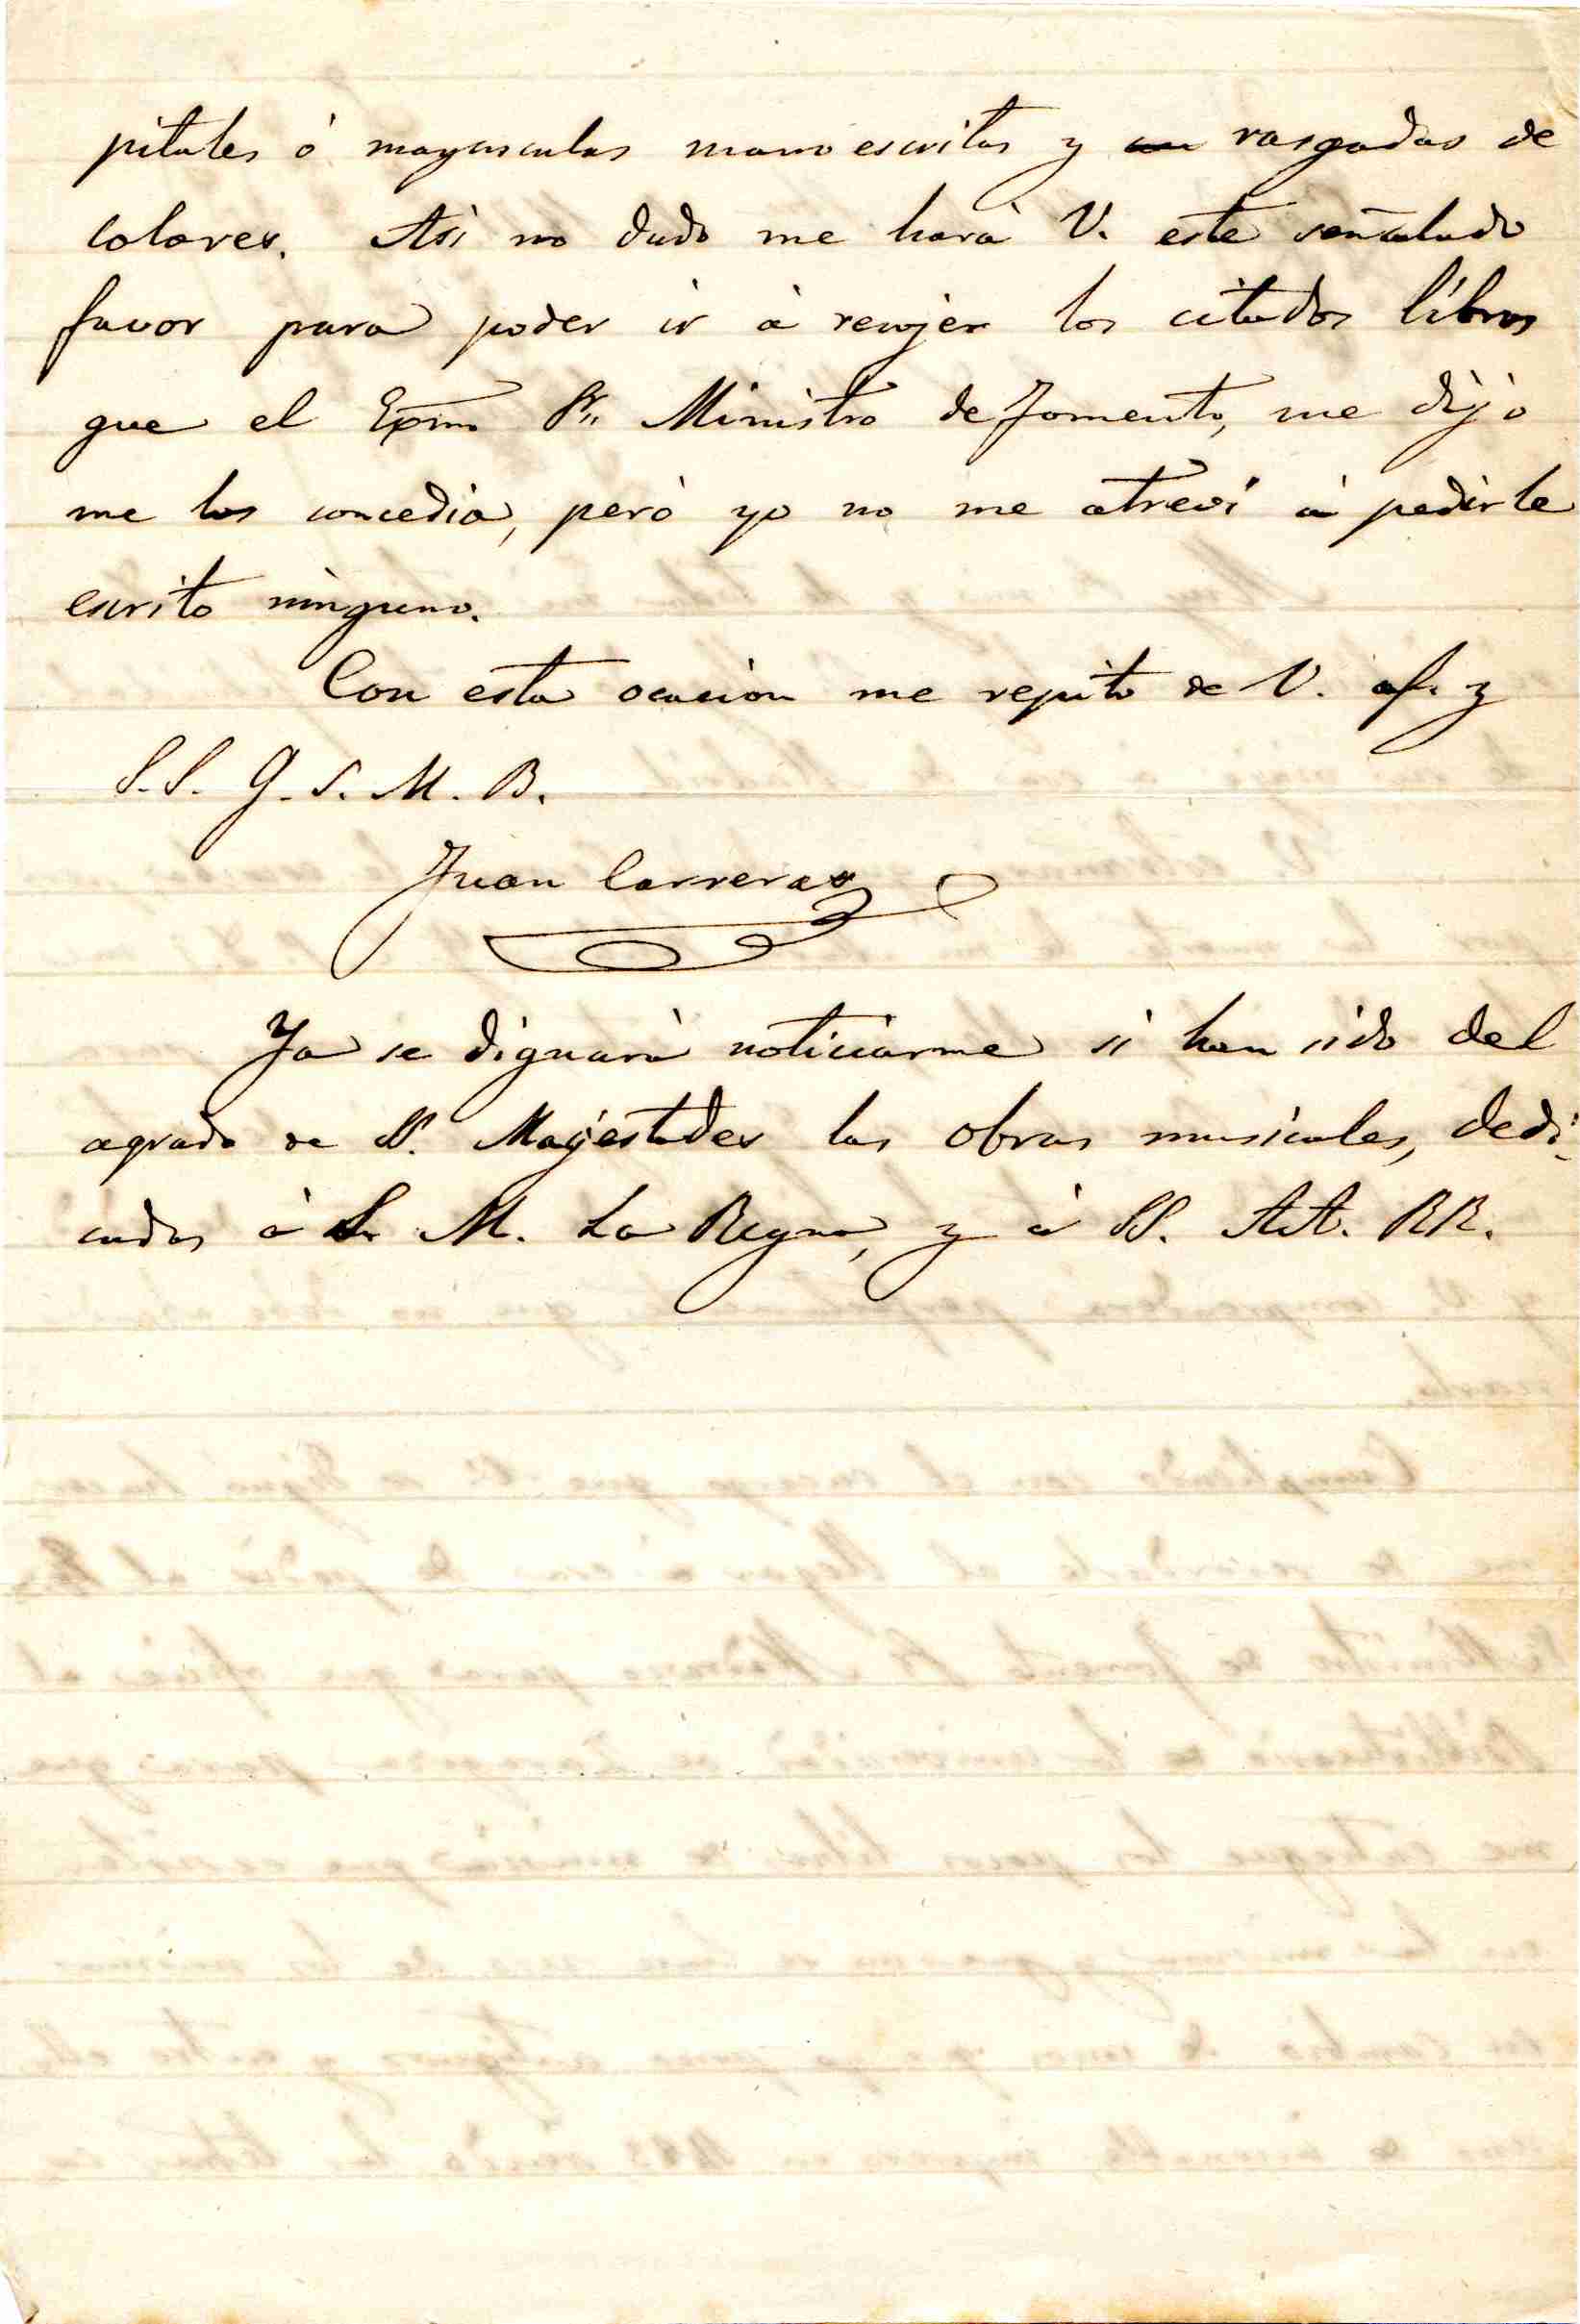 pitales ó mayusculas manoescritas y rasgadas de
colores. Asi no dudo me hará V. este señalado
favor para poder ir á recojer los citados libros
que el Exmo Sr. Ministro de Fomento, me dijo
me los concedia, peró yo no me atreví á pedirle
escrito ninguno.
Con esta ocacion me repito de V. af. y
S.S. Q. S. M. B.
Juan Carreras
Ya se dignará noticiarme si han sido del
agrado de SS. Majestades las obras musicales, dedi-
cadas á S. M. La Reyna, y á SS. AA. RR.